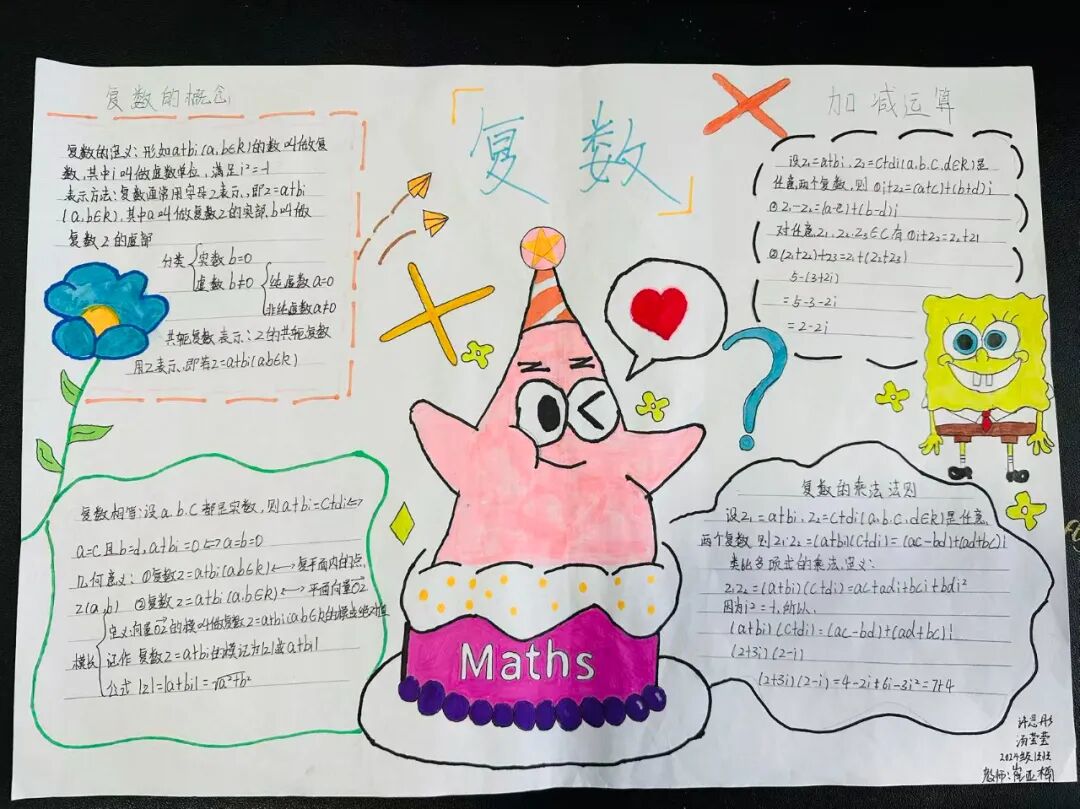 复数的概念
复数的定义：形如a+bi(a,b∈R)的数叫做复
数，其中i叫做虚数单位，满足i²=-1
表示方法：复数通常用字母z表示，即z=a+bi
(a,b∈R)，其中a叫做复数z的实部，b叫做
复数z的虚部
分类 实数b=0
虚数b≠0 纯虚数a=0
非纯虚数a≠0
共轭复数表示：z的共轭复数
用z表示，即若z=a+bi(ab∈R)
「复数」
加减运算
设z₁=a+bi，z₂=c+di(a,b,c,d∈R)是
任意两个复数，则①i+z₂=(a+c)+(b+d)i
②z₁-z₂=(a-c)+(b-d)i
对任意z₁,z₂,z₃∈C有①i+z₂=z₂+z1
②(z₁+z₂)+z3=z₁+(z₂+z3)
5-(3+2i)
=5-3-2i
=2-2i
复数相等：设a.b.c都是实数，则a+bi=c+di⇔
a=c且b=d，a+bi=0⇔a=b=0
几何意义：①复数z=a+bi(ab∈R)⟷复平面内的点
z(a,b) ②复数z=a+bi(a,b∈R)⟷平面向量OZ
定义：向量OZ的模叫做复数z=a+bi(ab∈R)的模或绝对值
模长 记作 复数z=a+bi的模记为|z|或|a+bi|
公式|z|=|a+bi|=√a²+b²
Maths
复数的乘法法则
设z₁=a+bi，z₂=c+di(a,b,c,d∈R)是任意
两个复数则z₁z₂=(a+bi)(c+di)=(ac-bd)+(ad+bc)i
类比多项式的乘法，定义：
z₁z₂=(a+bi)(c+di)=ac+adi+bci+bdi²
因为i²=-1，所以
(a+bi)(c+di)=(ac-bd)+(ad+bc)i
(2+3i)(2-i)
(2+3i)(2-i)=4-2i+6i-3i²=7+4
许思彤
汤莹莹
教师：崔亚楠